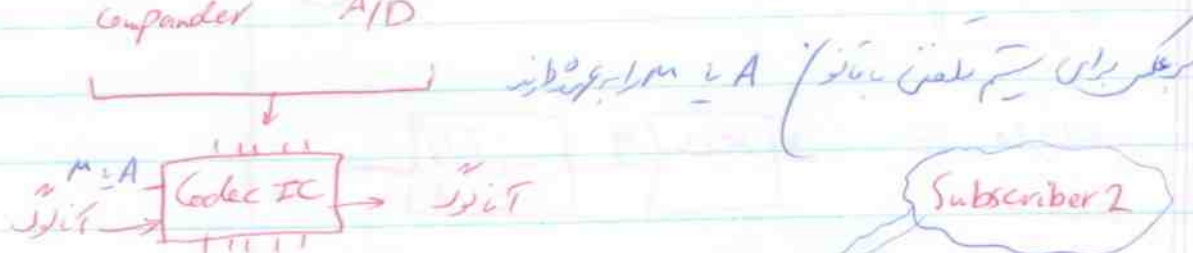 Compander A/D
برعکس برای سیستم تلفنی با قانون A یا μ را به عهده دارند
μ یا A
آنالوگ Codec IC آنالوگ
Subscriber 2